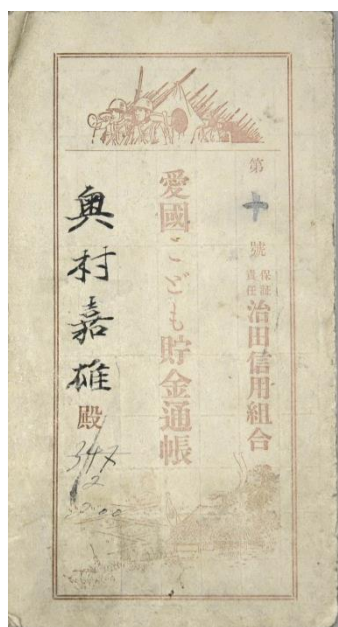 第十號
保証責任 治田信用組合
愛國こども貯金通帳
奥村嘉雄殿